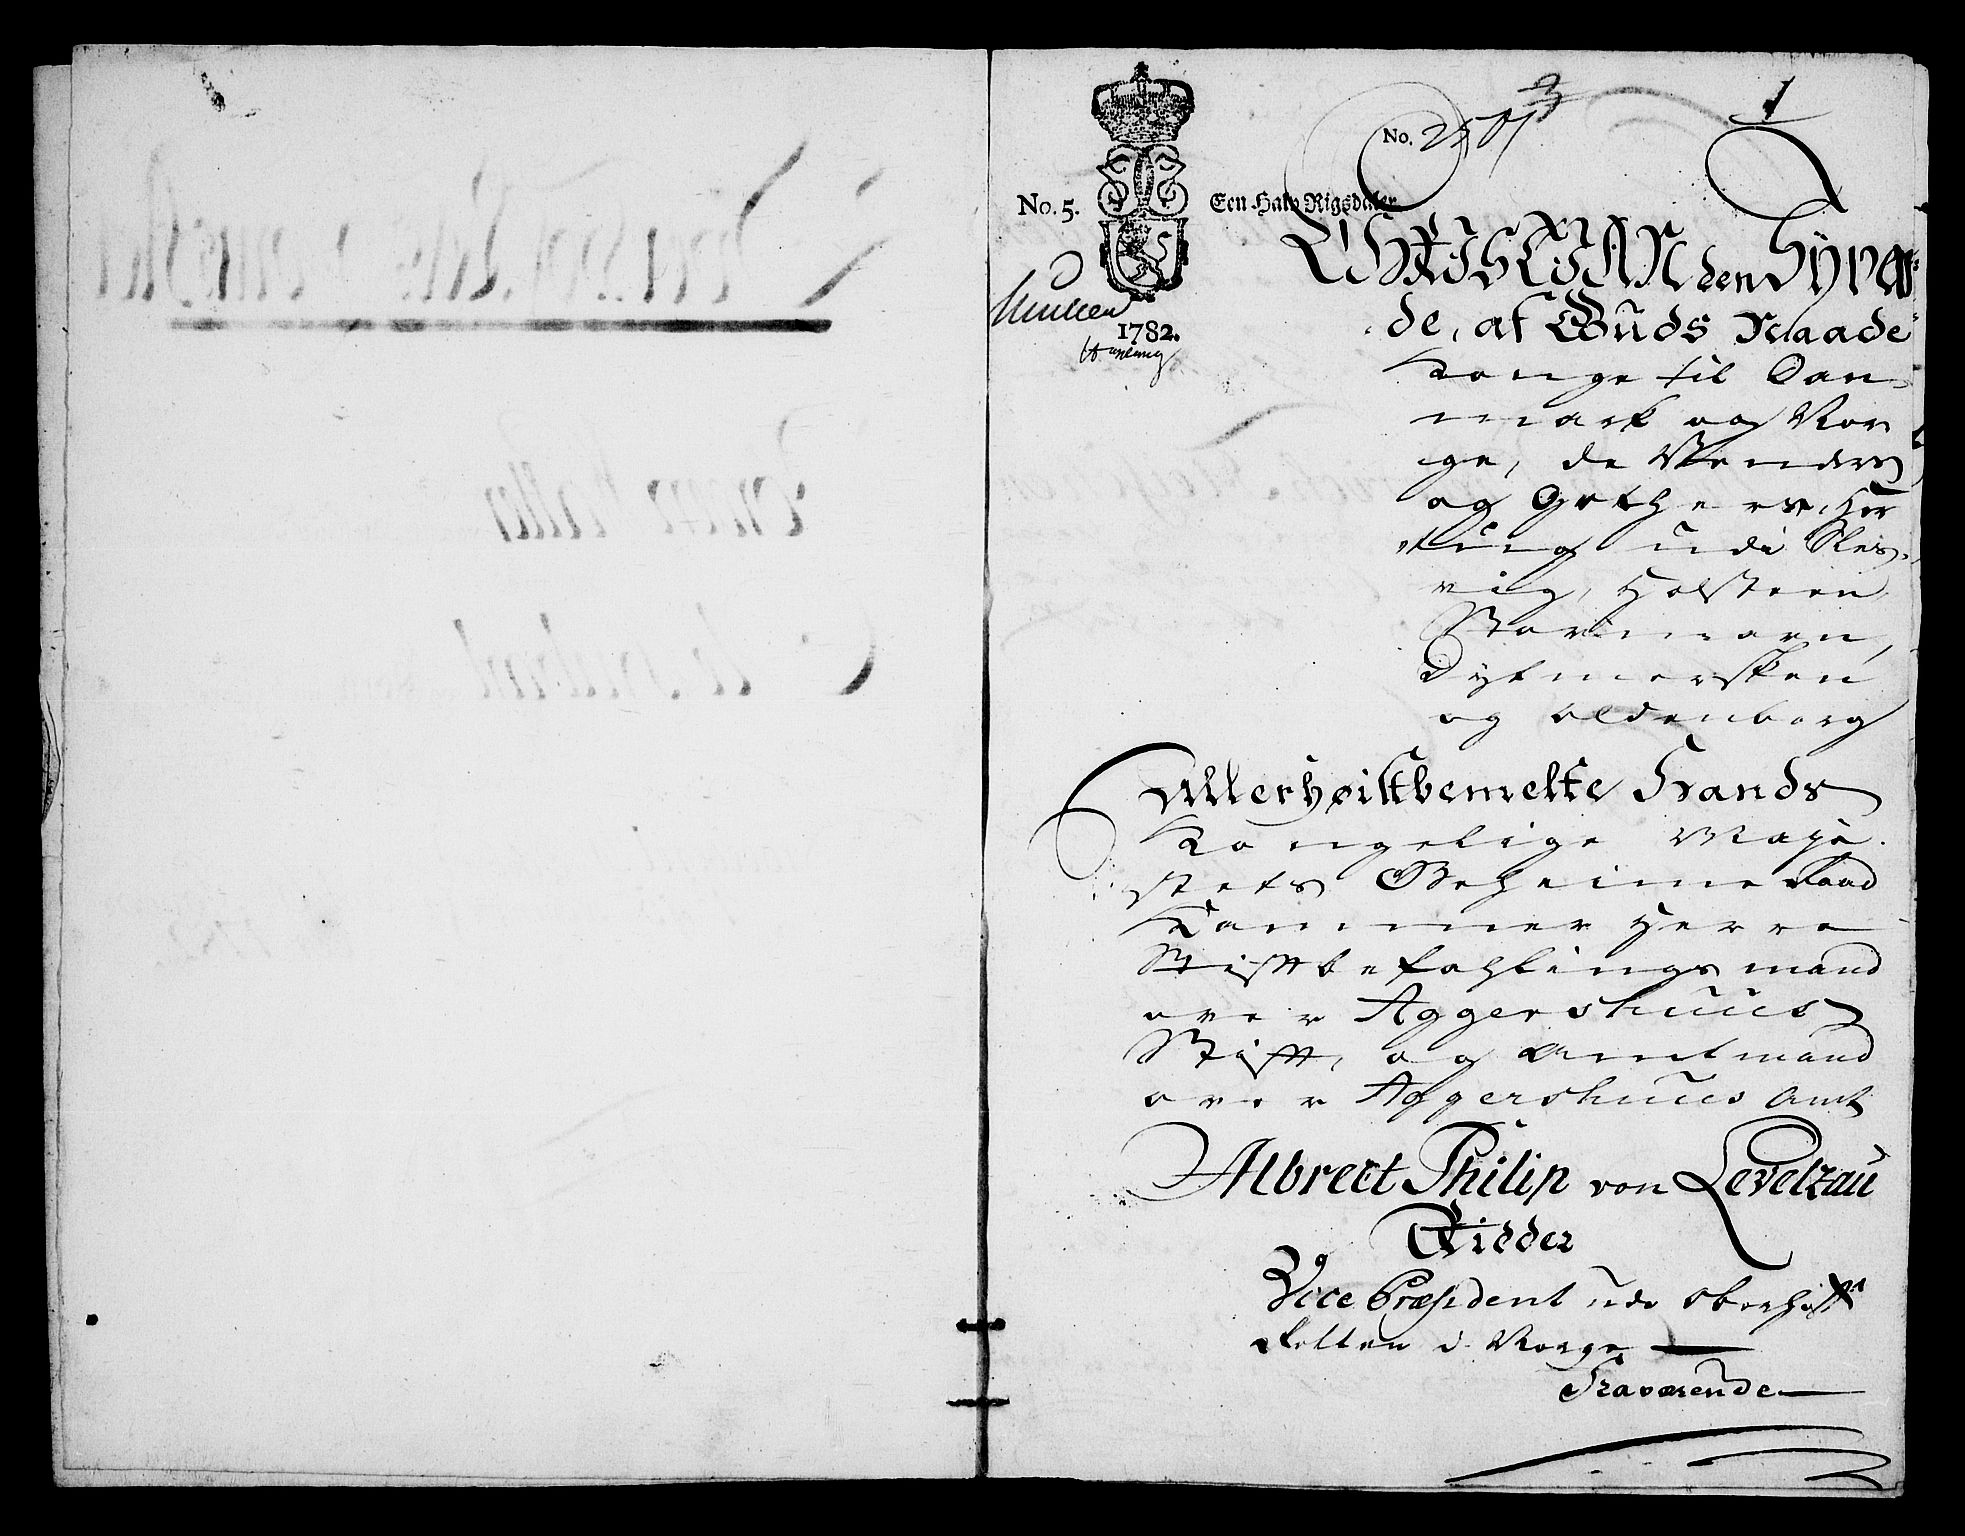 1
No. 2501
3
No. 5.
Een Halv Rigsdaler
1782.
CHRISTIAN den Syven-
de, af Guds Naade
Konge til Dan-
mark og Nor
ge, de Venders
og Gothers, Her
tug udi Sles-
vig, Holsteen
Stormarn,
Dytmersken
og Oldenborg
Allerhøistbemelte Hands
Kongelige Maje
stets Geheime Raad
Kammer Herre
Stiftbefahlingsmand
over Aggershuus
Stift, og Amtmand
over Aggershuus Amt
Albrect Philip von Levetzau
Ridder
Vice Præsident udi Oberhoff
Retten i Norge
Fraværende